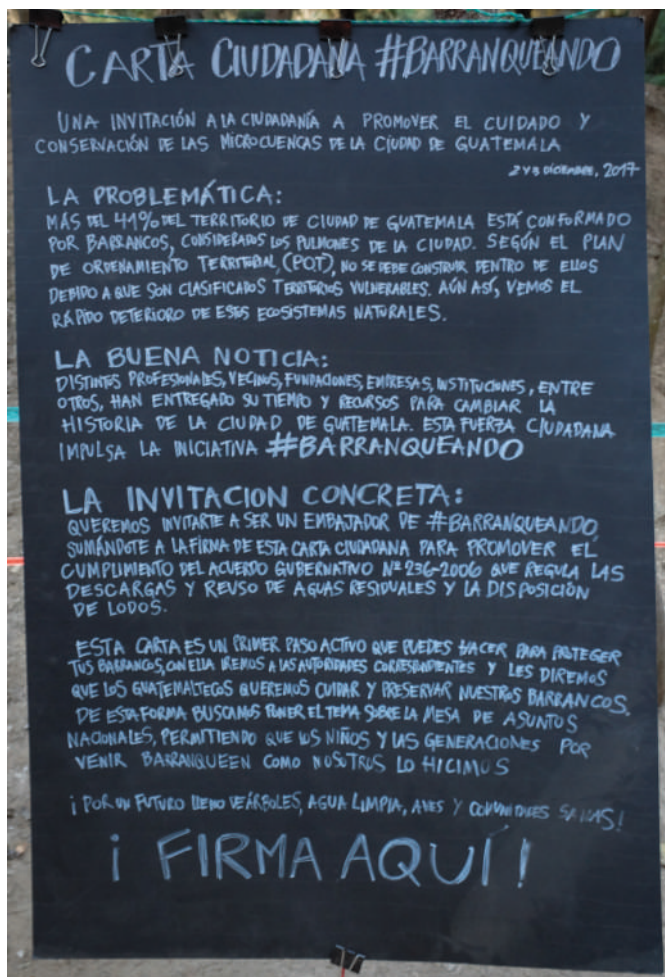 CARTA CIUDADANA #BARRANQUEANDO
UNA INVITACIÓN A LA CIUDADANÍA A PROMOVER EL CUIDADO Y
CONSERVACIÓN DE LAS MICROCUENCAS DE LA CIUDAD DE GUATEMALA
2 Y 3 DICIEMBRE, 2017
LA PROBLEMÁTICA:
MÁS DEL 41% DEL TERRITORIO DE CIUDAD DE GUATEMALA ESTÁ CONFORMADO
POR BARRANCOS, CONSIDERADOS LOS PULMONES DE LA CIUDAD. SEGÚN EL PLAN
DE ORDENAMIENTO TERRITORIAL, (POT), NO SE DEBE CONSTRUIR DENTRO DE ELLOS
DEBIDO A QUE SON CLASIFICADOS TERRITORIOS VULNERABLES. AÚN ASÍ, VEMOS EL
RÁPIDO DETERIORO DE ESTOS ECOSISTEMAS NATURALES.
LA BUENA NOTICIA:
DISTINTOS PROFESIONALES, VECINOS, FUNDACIONES, EMPRESAS, INSTITUCIONES, ENTRE
OTROS, HAN ENTREGADO SU TIEMPO Y RECURSOS PARA CAMBIAR LA
HISTORIA DE LA CIUDAD DE GUATEMALA. ESTA FUERZA CIUDADANA
IMPULSA LA INICIATIVA #BARRANQUEANDO
LA INVITACION CONCRETA:
QUEREMOS INVITARTE A SER UN EMBAJADOR DE #BARRANQUEANDO,
SUMÁNDOTE A LA FIRMA DE ESTA CARTA CIUDADANA PARA PROMOVER EL
CUMPLIMIENTO DEL ACUERDO GUBERNATIVO Nº 236-2006 QUE REGULA LAS
DESCARGAS Y REUSO DE AGUAS RESIDUALES Y LA DISPOSICIÓN
DE LODOS.
ESTA CARTA ES UN PRIMER PASO ACTIVO QUE PUEDES HACER PARA PROTEGER
TUS BARRANCOS, CON ELLA IREMOS A LAS AUTORIDADES CORRESPONDIENTES Y LES DIREMOS
QUE LOS GUATEMALTECOS QUEREMOS CUIDAR Y PRESERVAR NUESTROS BARRANCOS.
DE ESTA FORMA BUSCAMOS PONER EL TEMA SOBRE LA MESA DE ASUNTOS
NACIONALES, PERMITIENDO QUE LOS NIÑOS Y LAS GENERACIONES POR
VENIR BARRANQUEEN COMO NOSOTROS LO HICIMOS
¡POR UN FUTURO LLENO DE ÁRBOLES, AGUA LIMPIA, AVES Y COMUNIDADES SANAS!
¡FIRMA AQUÍ!